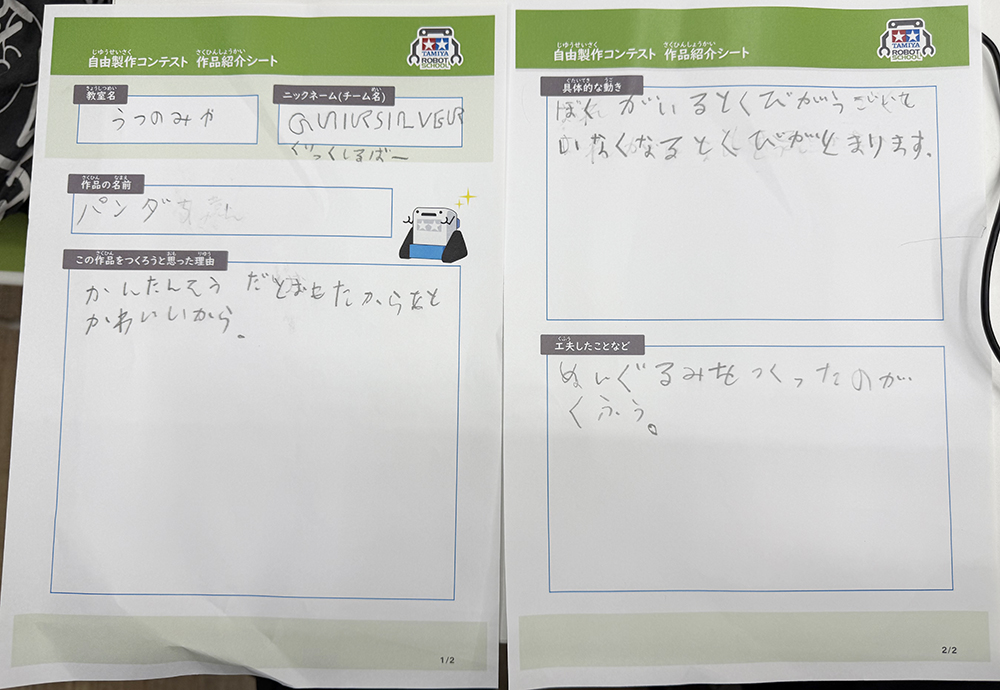 じゆうせいさく さくひんしょうかい
自由製作コンテスト 作品紹介シート
TAMIYA
ROBOT
SCHOOL
きょうしつめい
教室名
うつのみや
めい
ニックネーム(チーム名)
QUIURSILVER
ぐっくしるばー
さくひん なまえ
作品の名前
パンダ
さくひん おも りゆう
この作品をつくろうと思った理由
かんたんそうだとおもたからなと
かわいいから。
1/2
じゆうせいさく さくひんしょうかい
自由製作コンテスト 作品紹介シート
TAMIYA
ROBOT
SCHOOL
ぐたいてき うご
具体的な動き
ぼくがいるとくびがうごいて
いなくなるとくびがとまります。
くふう
工夫したことなど
ぬいぐるみをつくったのが
くふう。
2/2